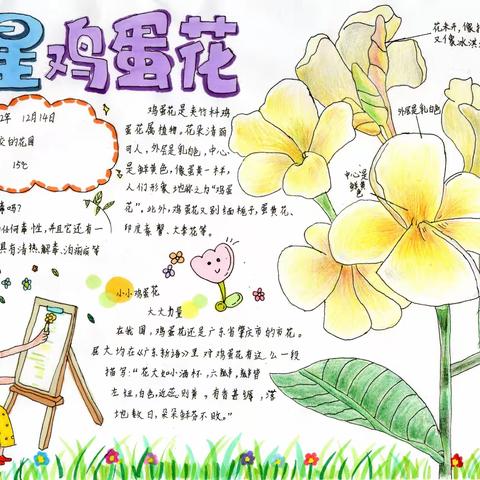 星鸡蛋花
2年 12月14日
的花园
15℃
鸡蛋花是夹竹科鸡
蛋花属植物,花朵清丽
可人,外层是乳白色,中心
是鲜黄色,像蛋黄一样,
人们形象地称之为"鸡蛋
花"。此外,鸡蛋花又别缅栀子,蛋黄花、
印度素馨、大季花等。
毒吗?
任何毒性,并且它还有一
具有清热、解毒、治痢疾等
小小鸡蛋花
大大力量
在我国,鸡蛋花还是广东省肇庆市的市花。
屈大均在《广东新语》里对鸡蛋花有这么一段
描写:"花大如小酒杯,六瓣,瓣皆
左纽,白色,近蕊则黄,有香甚缛,落
地数日,朵朵鲜芬不败。"
花未开,像
又像冰淇
外层是乳白色
中心是
鲜黄色